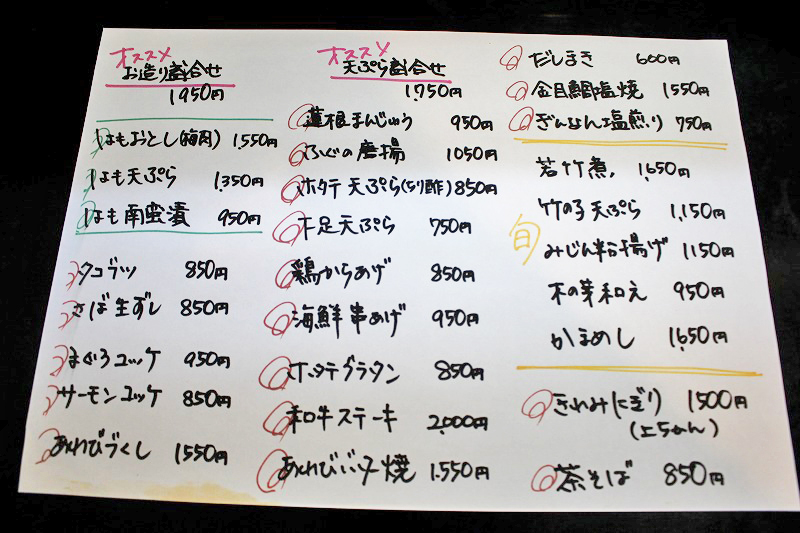 オススメ
お造り盛合せ
1950円
はもおとし(梅肉) 1,550円
はも天ぷら 1,350円
はも南蛮漬 950円
タコブツ 850円
さば生ずし 850円
まぐろユッケ 950円
サーモンユッケ 850円
あわびづくし 1550円
オススメ
天ぷら盛合せ
1,750円
蓮根まんじゅう 950円
ふぐの唐揚 1050円
ホタテ天ぷら(ちり酢) 850円
下足天ぷら 750円
鶏からあげ 850円
海鮮串あげ 950円
ホタテグラタン 850円
和牛ステーキ 2,000円
あわびバター焼 1.550円
だしまき 600円
金目鯛塩焼 1550円
ぎんなん塩煎り 750円
旬
若竹煮 1,650円
竹の子天ぷら 1,150円
みじん粉揚げ 1150円
木の芽和え 950円
かまめし 1,650円
きわみにぎり 1500円
(上ちらん)
茶そば 850円